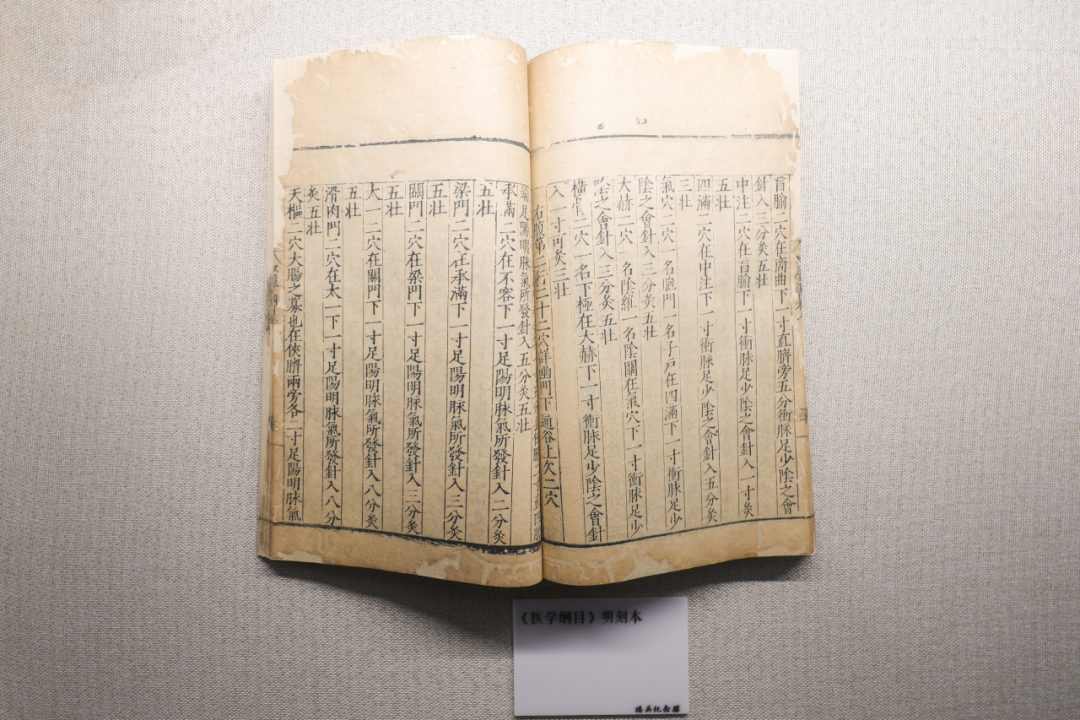 肓腧二穴在商曲下一寸直臍旁五分衝脉足少陰之會
針入三分灸五壯
中注二穴在肓腧下一寸衝脉足少陰之會針入一寸灸
五壯
四滿二穴在中注下一寸衝脉足少陰之會針入五分灸
三壯
氣穴二穴一名胞門一名子戶在四滿下一寸衝脉足少
陰之會針入三分灸五壯
大赫二穴一名陰維一名陰關在氣穴下一寸衝脉足少
陰之會針入三分灸五壯
橫二穴一名下極在大赫下一寸衝脉足少陰之會針
入一寸可灸三壯
右腹第二行二十二穴詳幽門下通谷上次二穴
足陽明脉氣所發針入五分灸五壯
承滿二穴在不容下一寸足陽明脉氣所發針入二分灸
五壯
梁門二穴在承滿下一寸足陽明脉氣所發針入三分灸
五壯
關門二穴在梁門下一寸足陽明脉氣所發針入三分灸
五壯
大一二穴在關門下一寸足陽明脉氣所發針入八分灸
五壯
滑肉門二穴在太一下一寸足陽明脉氣所發針入八分
灸五壯
天樞二穴大腸之募也在俠臍兩旁各二寸足陽明脉氣
《医学纲目》明刻本
楼英纪念馆